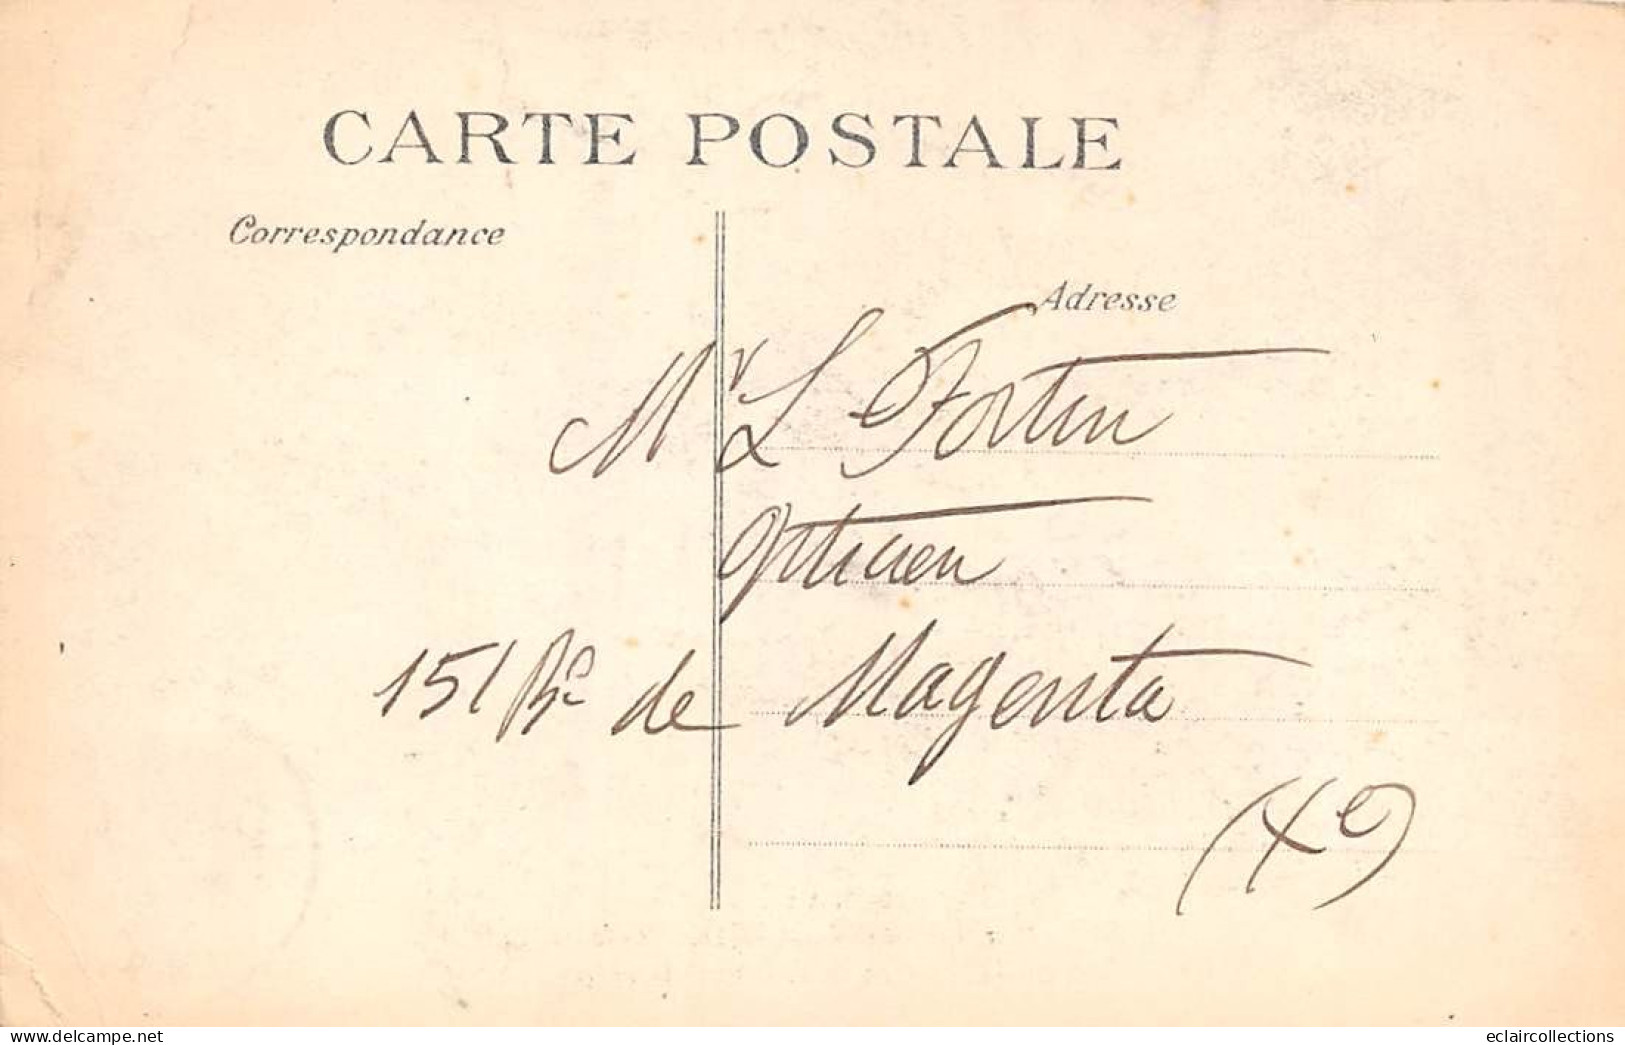 CARTE POSTALE
Correspondance
Adresse
Mr L Fortin
Opticien
151 Bd de Magenta
(Xe)
www.delcampe.net
eclaircollections